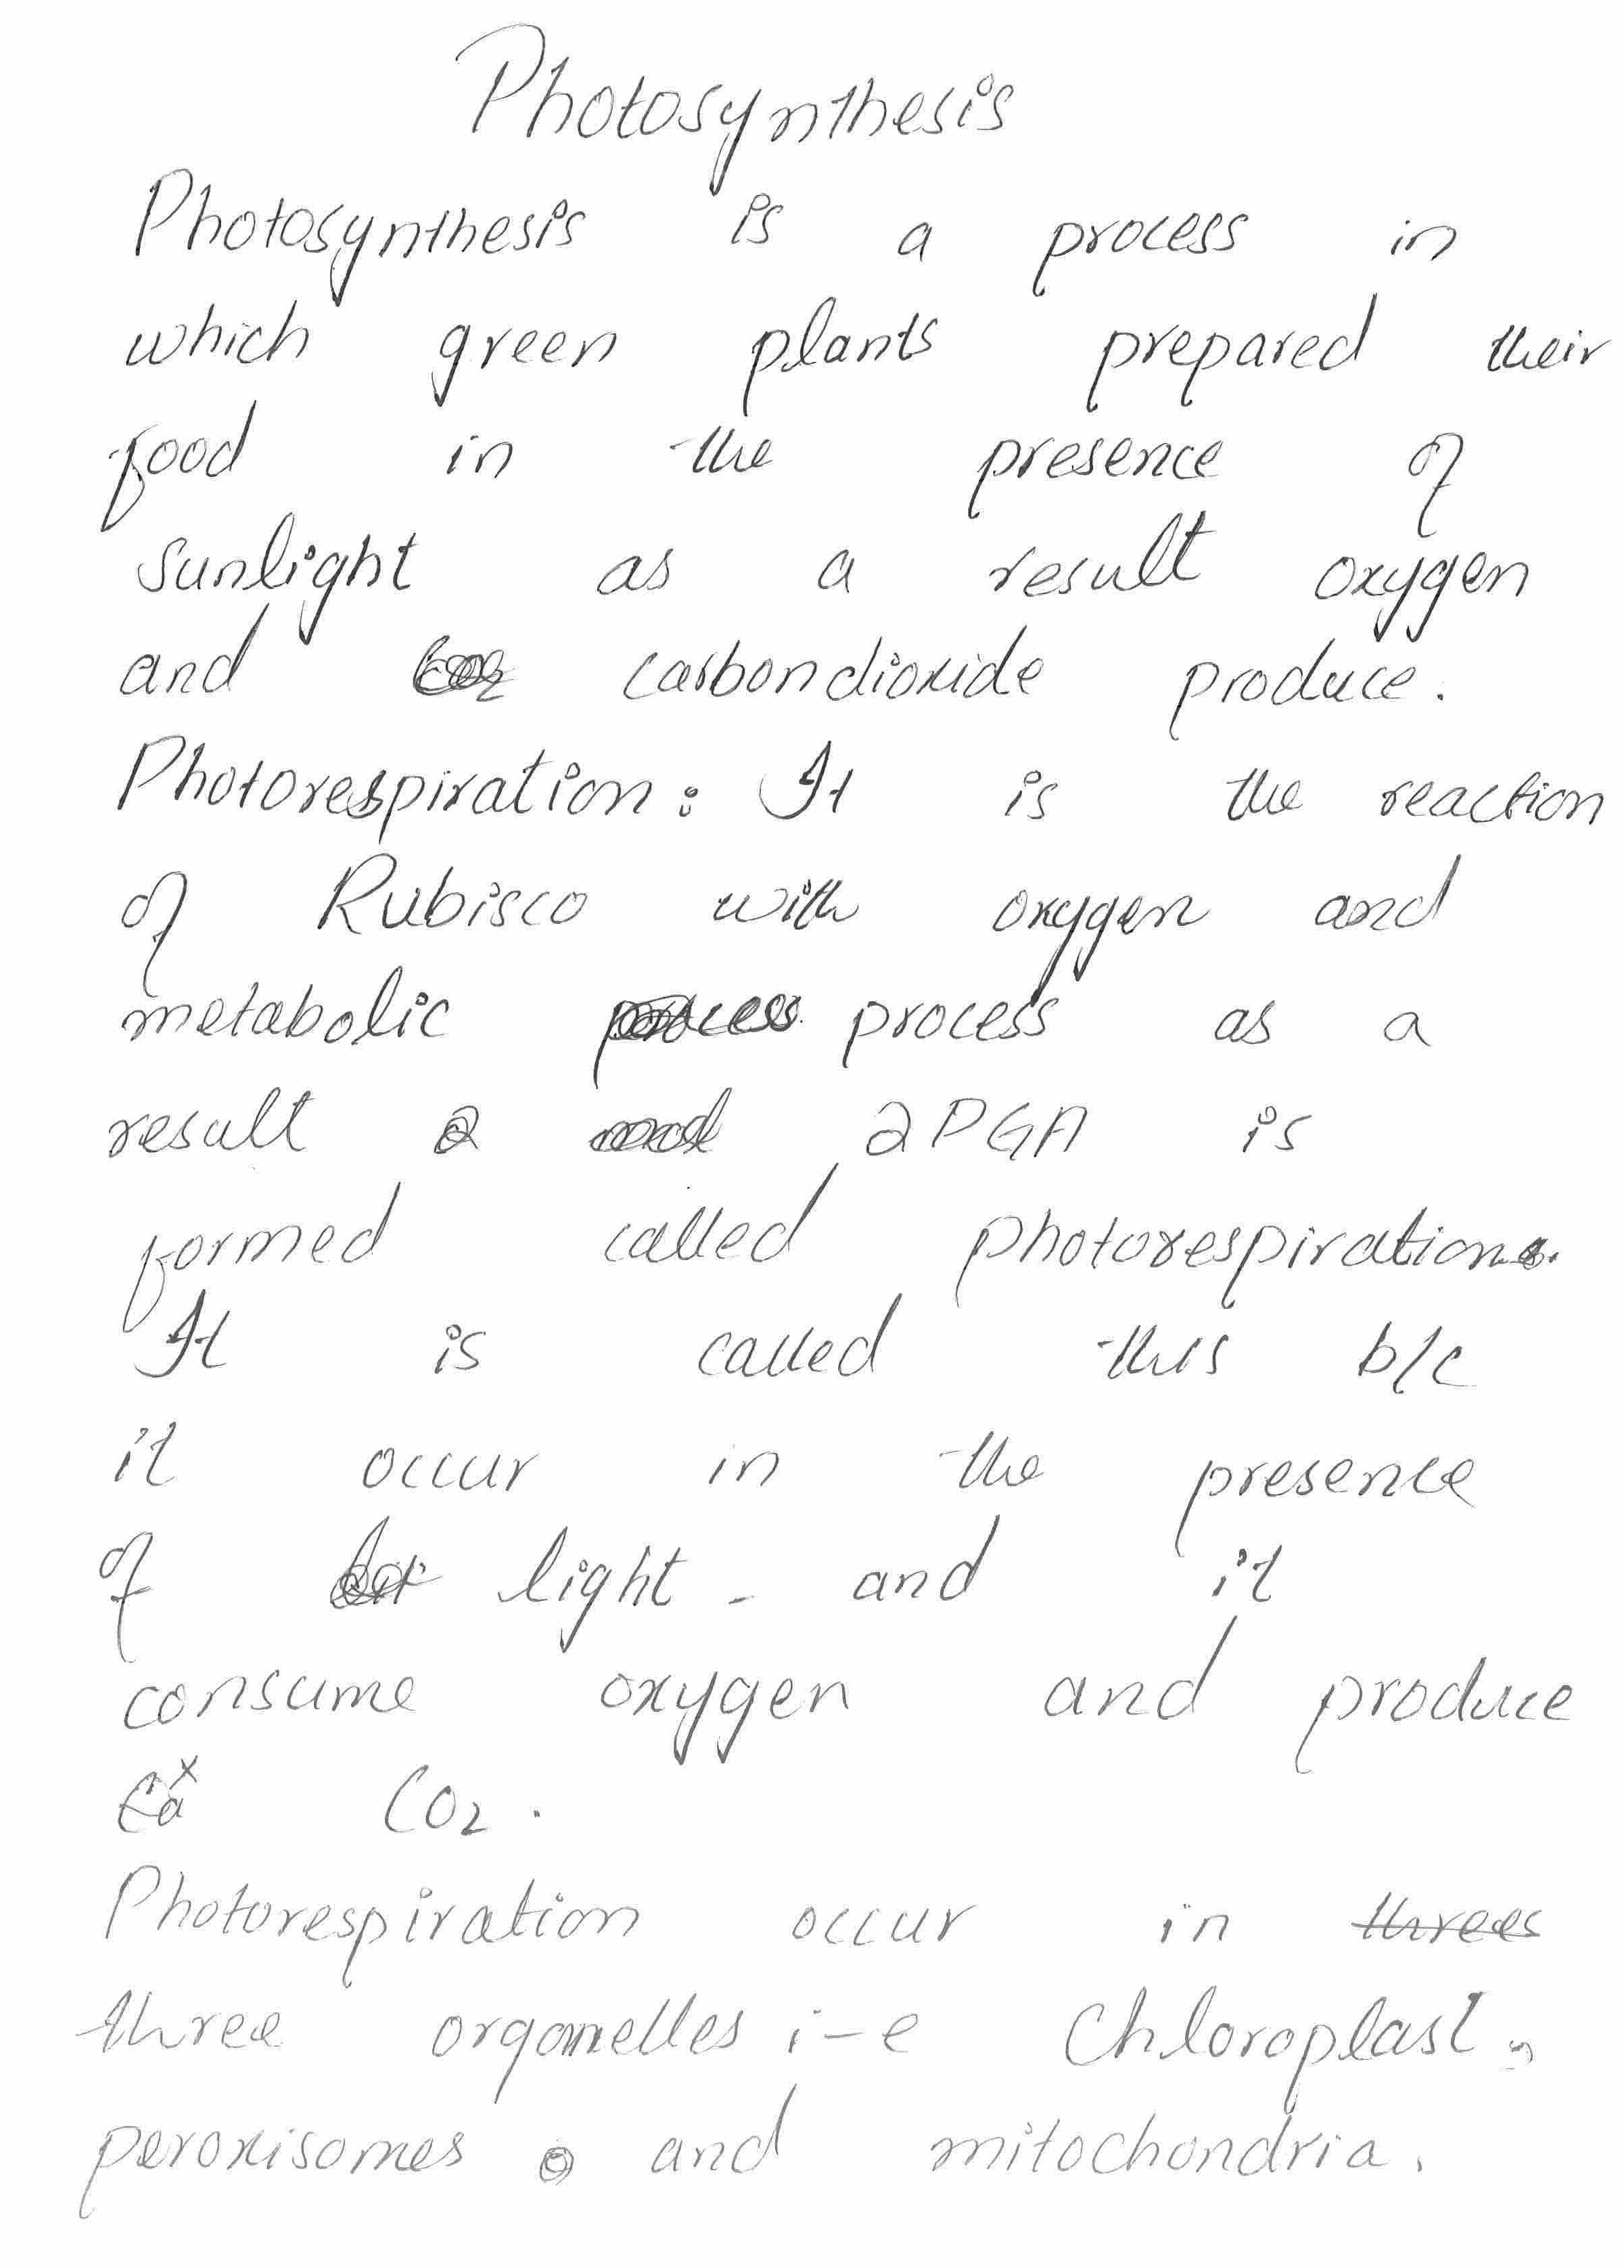 Photosynthesis
Photosynthesis is a process in
which green plants prepared their
food in the presence of
sunlight as a result oxygen
and carbondioxide produce.
Photorespiration: It is the reaction
of Rubisco with oxygen and
metabolic process as a
result 2PGA is
formed called photorespiration.
It is called this b/c
it occur in the presence
of light - and it
consume oxygen and produce
CO2.
Photorespiration occur in threes
three organelles i-e Chloroplast,
peroxisomes and mitochondria.